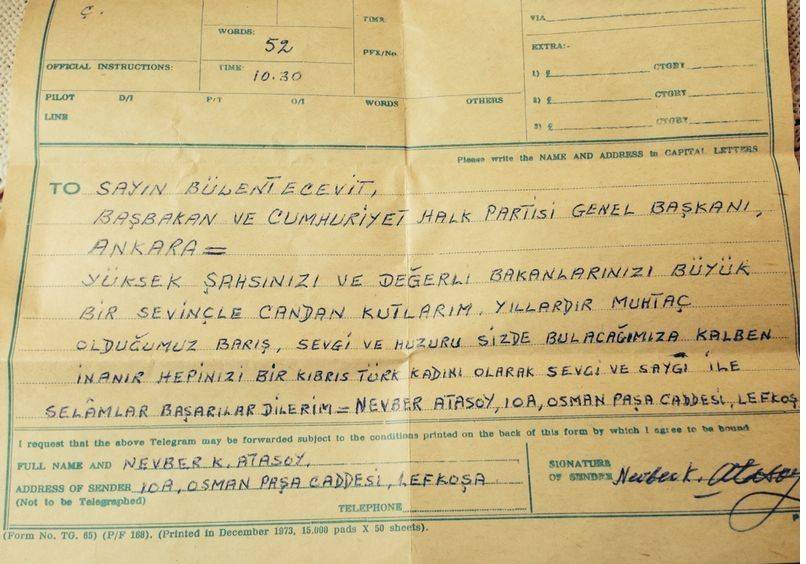 Ç.
WORDS:
52
TIME
PFX/No.
OFFICIAL INSTRUCTIONS:
TIME:
10.30
PILOT D/I P/T O/I WORDS OTHERS
LINE
VIA
EXTRA:-
1) £ CTGRY
2) £ CTGRY
3) £ CTGRY
Please write the NAME AND ADDRESS in CAPITAL LETTERS
TO SAYIN BÜLENT ECEVİT,
BAŞBAKAN VE CUMHURİYET HALK PARTİSİ GENEL BAŞKANI,
ANKARA =
YÜKSEK ŞAHSINIZI VE DEĞERLİ BAKANLARINIZI BÜYÜK
BİR SEVİNÇLE CANDAN KUTLARIM. YILLARDIR MUHTAÇ
OLDUĞUMUZ BARIŞ, SEVGİ VE HUZURU SİZDE BULACAĞIMIZA KALBEN
İNANIR HEPİNİZİ BİR KIBRIS TÜRK KADINI OLARAK SEVGİ VE SAYGI İLE
SELÂMLAR BAŞARILAR DİLERİM = NEVBER ATASOY, 10A, OSMAN PAŞA CADDESİ, LEFKOŞ
I request that the above Telegram may be forwarded subject to the conditions printed on the back of this form by which I agree to be bound
FULL NAME AND NEVBER K. ATASOY,
ADDRESS OF SENDER 10A, OSMAN PAŞA CADDESİ, LEFKOŞA
(Not to be Telegraphed)
TELEPHONE
SIGNATURE
OF SENDER Nevber K. Atasoy
(Form No. TG. 65) (P/F 168). (Printed in December 1973, 15,000 pads X 50 sheets).